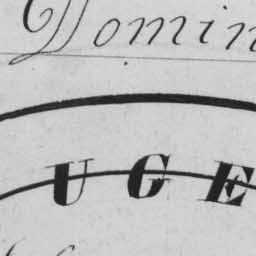 Domin
UGE